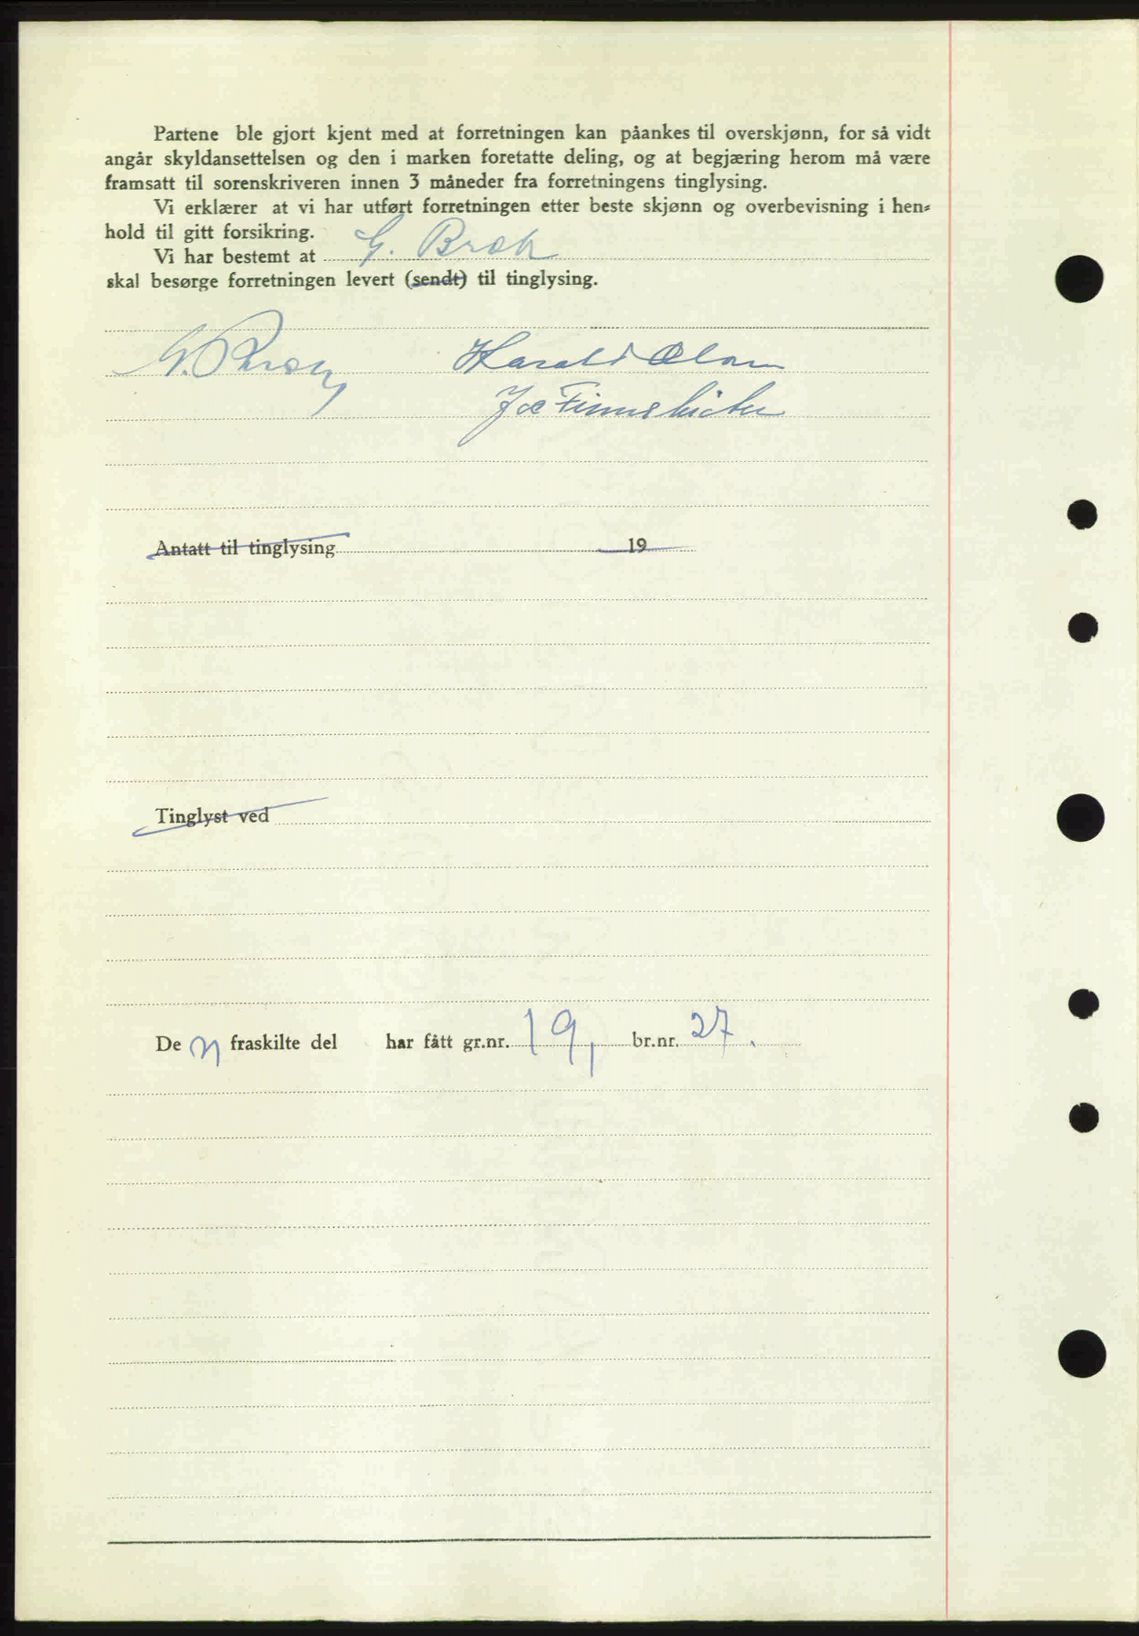 Partene ble gjort kjent med at forretningen kan påankes til overskjønn, for så vidt
angår skyldansettelsen og den i marken foretatte deling, og at begjæring herom må være
framsatt til sorenskriveren innen 3 måneder fra forretningens tinglysing.
Vi erklærer at vi har utført forretningen etter beste skjønn og overbevisning i hen-
hold til gitt forsikring.
Vi har bestemt at G. Broch
skal besørge forretningen levert (sendt) til tinglysing.
G. Broch Harald Olsen
Antatt til tinglysing 19
Tinglyst ved
De n fraskilte del har fått gr.nr. 19, br.nr. 27.